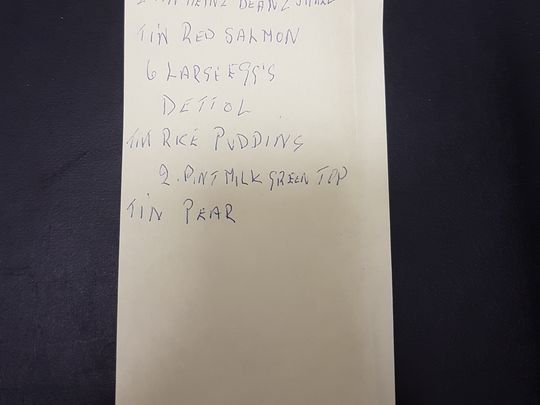 HEINZ BEANZ SMALL
TIN RED SALMON
6 LARGE EGG'S
DETTOL
TIN RICE PUDDING
2. PINT MILK GREEN TOP
TIN PEAR